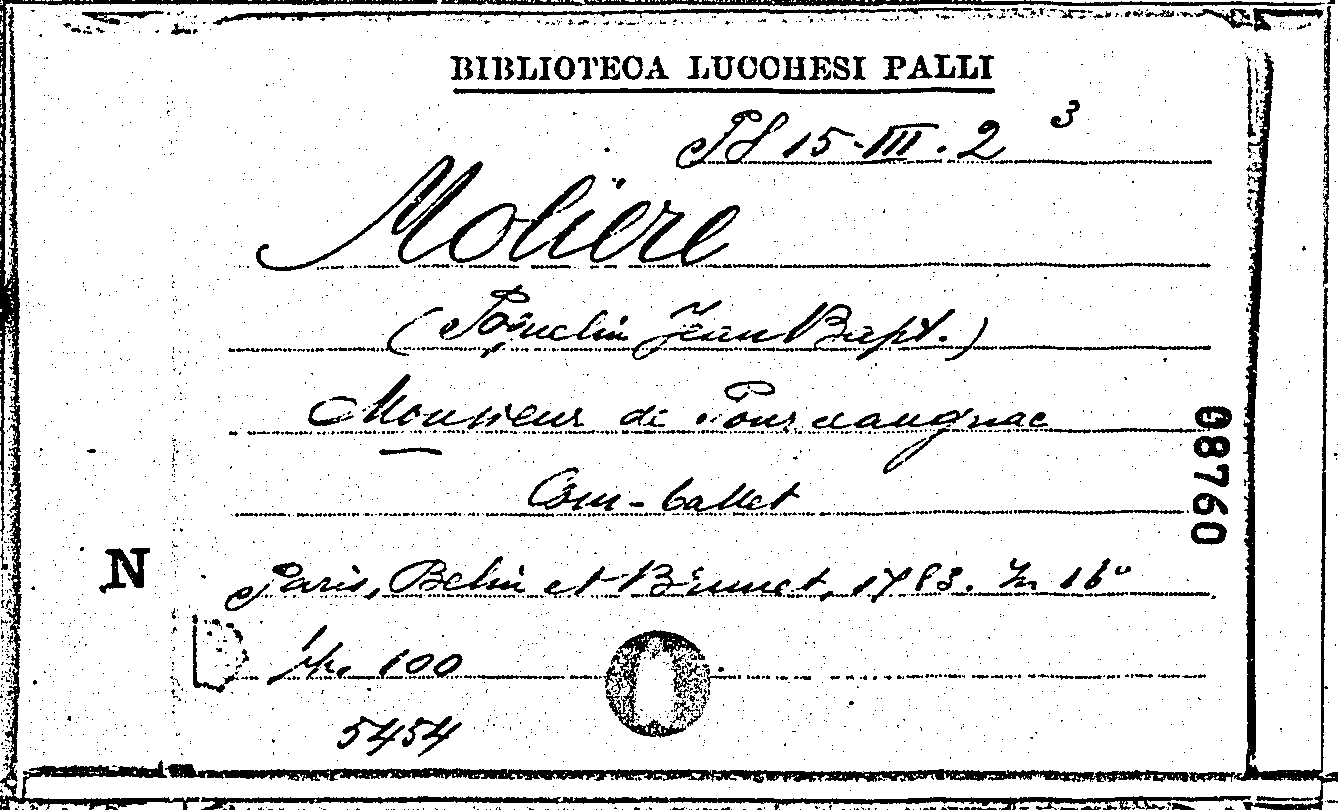 BIBLIOTECA LUCCHESI PALLI
Pl 15-III. 2 3
Molière
(Poquelin Jean Bapt.)
Monsieur de Pourceaugnac
Com-ballet
N
Paris, Belin et Brunet, 1783. In 16°
pp. 100
5454
08760